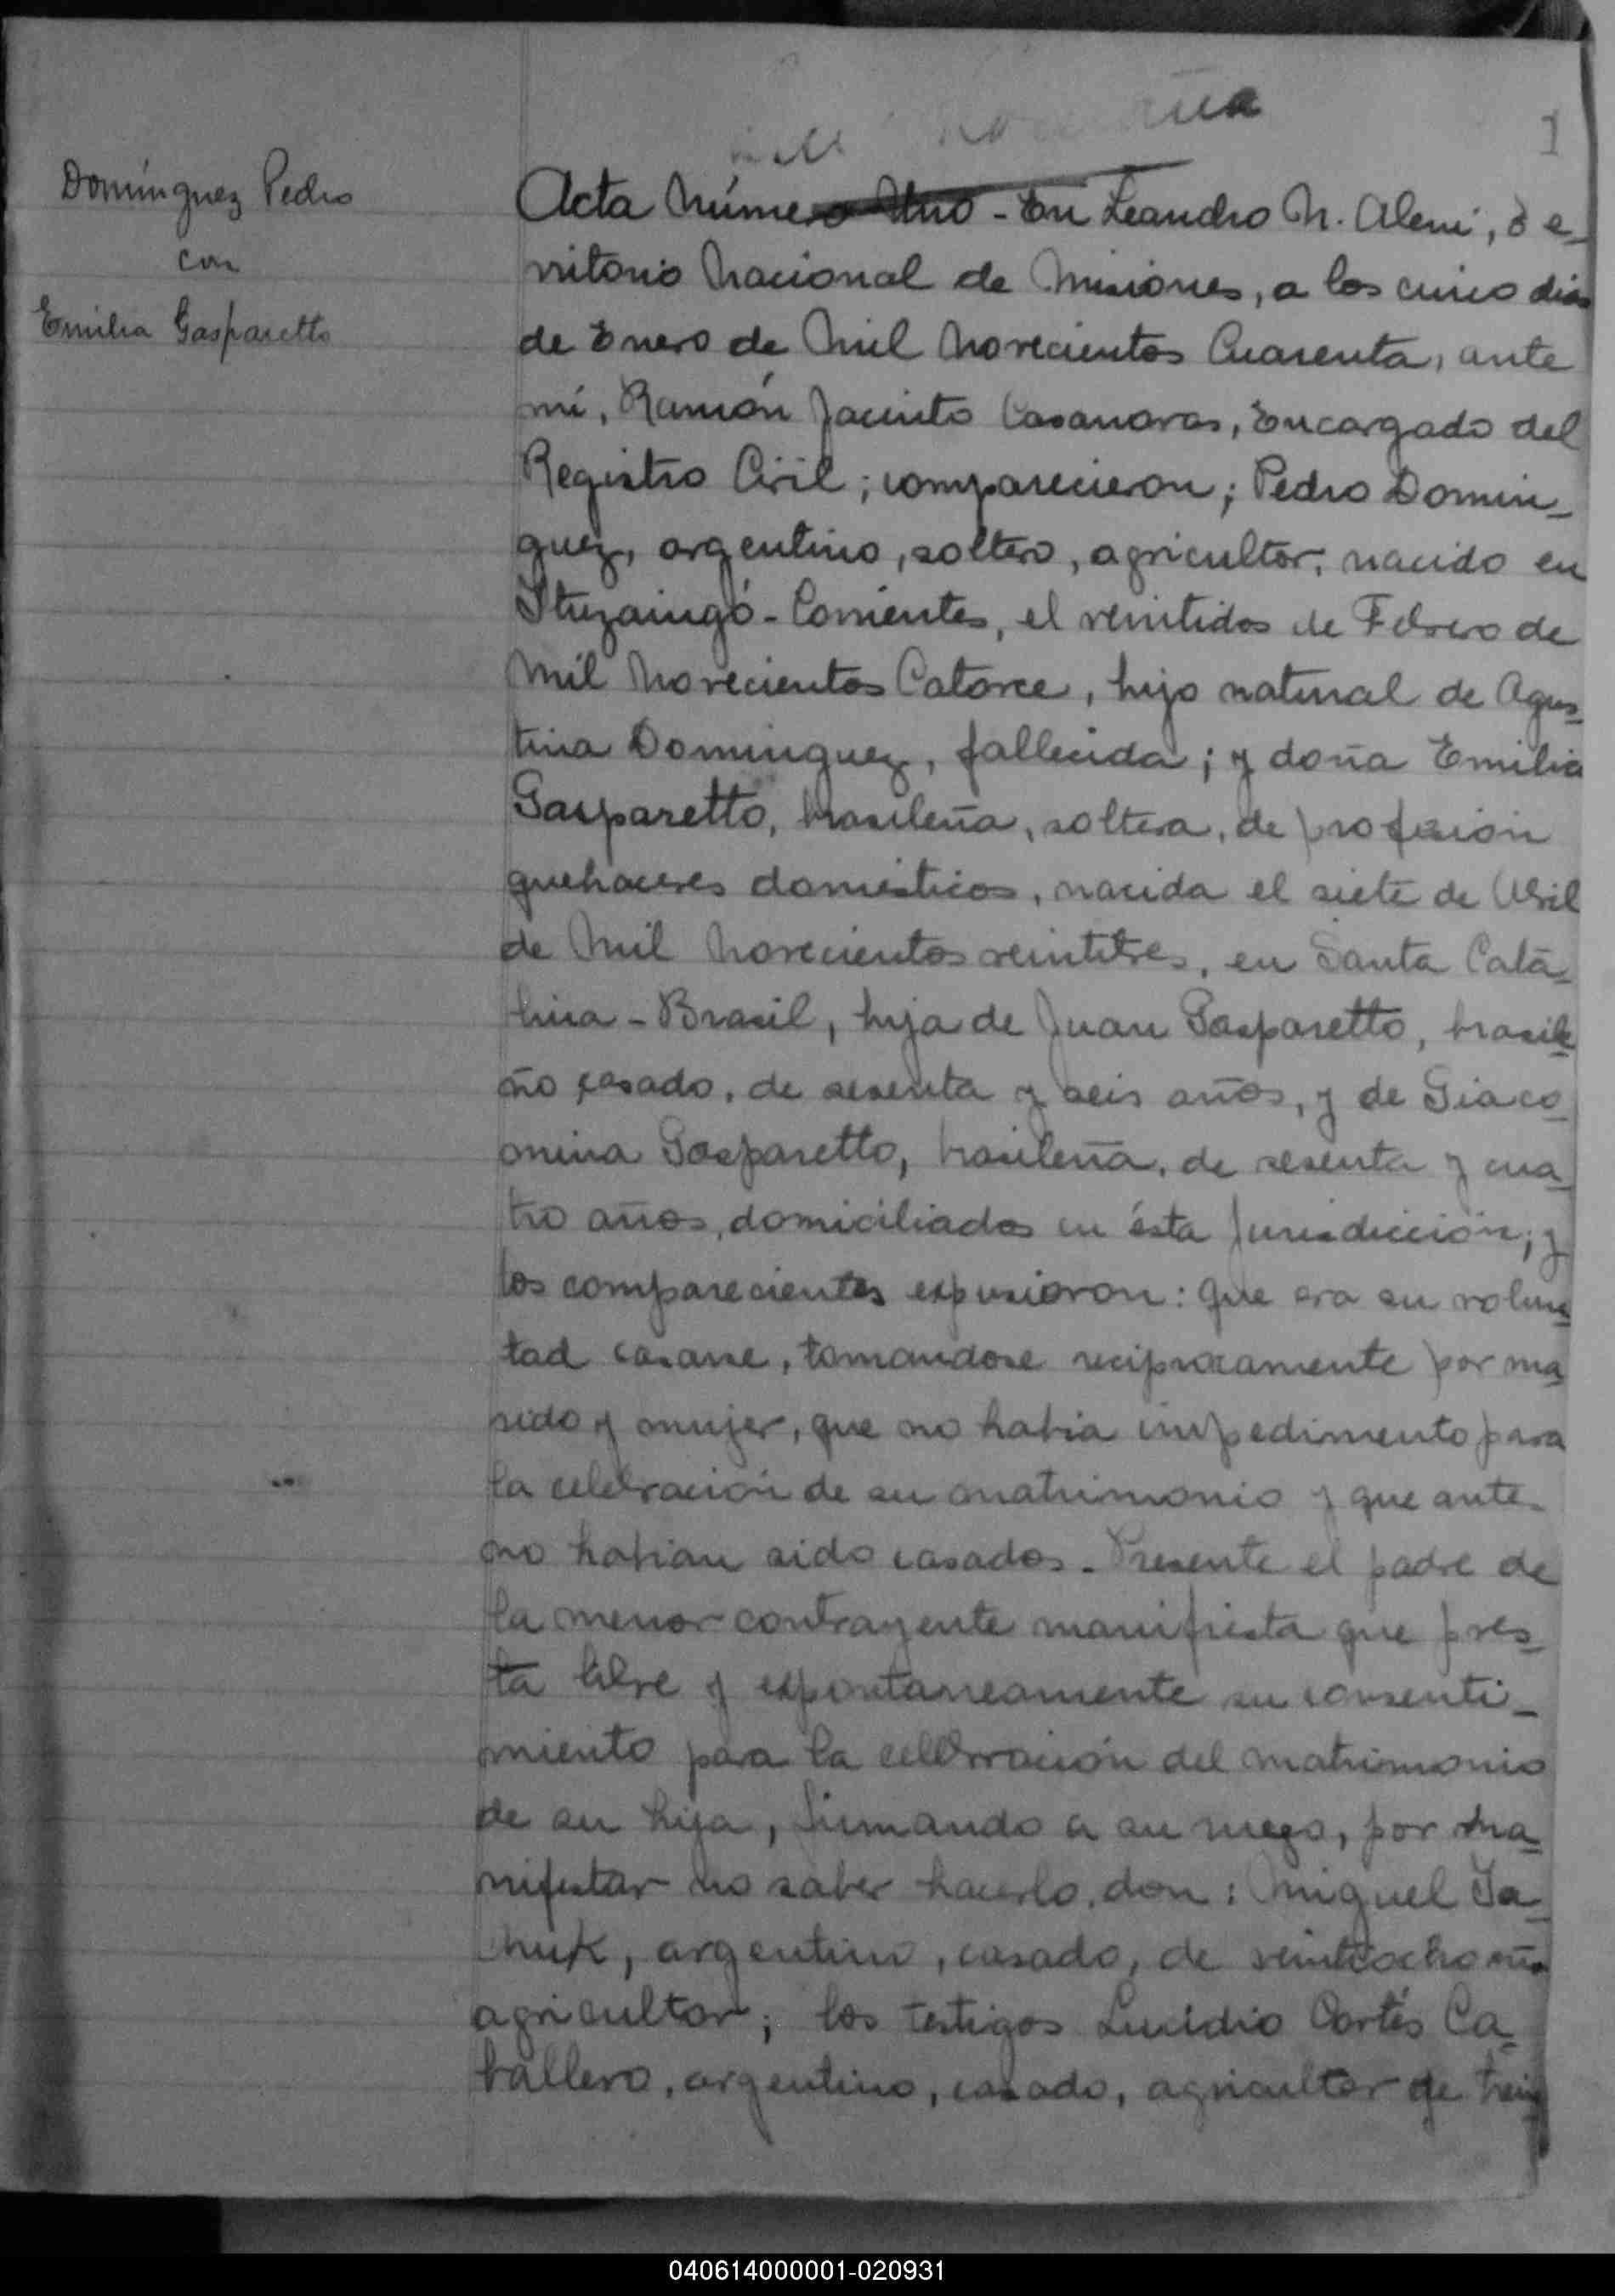 1
Domínguez Pedro
con
Emilia Gasparetto
Acta Número Uno - En Leandro N. Alem, Te-
rritorio Nacional de Misiones, a los cinco dias
de Enero de Mil Novecientos Cuarenta, ante
mí, Ramón Jacinto Casanovas, Encargado del
Registro Civil; comparecieron; Pedro Domin-
guez, argentino, soltero, agricultor, nacido en
Ituzaingó - Corrientes, el veintidos de Febrero de
Mil Novecientos Catorce, hijo natural de Agus-
tina Dominguez, fallecida; y doña Emilia
Gasparetto, brasileña, soltera, de profesión
quehaceres domésticos, nacida el siete de Abril
de Mil Novecientos veintitres, en Santa Cata-
lina - Brasil, hija de Juan Gasparetto, brasile-
ño casado, de sesenta y seis años, y de Giaco-
mina Gasparetto, brasileña, de sesenta y cua-
tro años, domiciliados en ésta Jurisdicción; y
los comparecientes expusieron: que era su volun-
tad casarse, tomandose reciprocamente por ma-
rido y mujer, que no habia impedimento para
la celebración de su matrimonio y que antes
no habian sido casados. Presente el padre de
la menor contrayente manifiesta que pres-
ta libre y espontaneamente su consenti-
miento para la celebración del matrimonio
de su hija, firmando a su ruego, por ma-
nifestar no saber hacerlo, don: Miguel
argentino, casado, de veintiocho años
agricultor; los testigos Lucidio Cortés Ca-
ballero, argentino, casado, agricultor de trein-
040614000001-020931